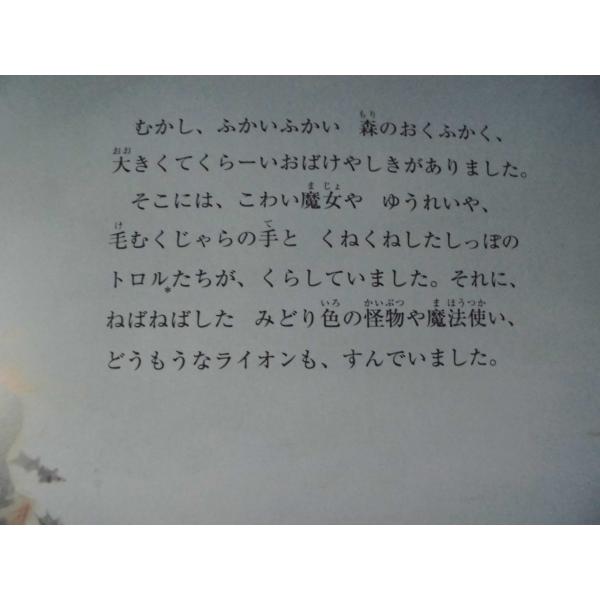 むかし、ふかいふかい　森のおくふかく、
大きくてくらーいおばけやしきがありました。
そこには、こわい魔女や　ゆうれいや、
毛むくじゃらの手と　くねくねしたしっぽの
トロル*たちが、くらしていました。それに、
ねばねばした　みどり色の怪物や魔法使い、
どうもうなライオンも、すんでいました。